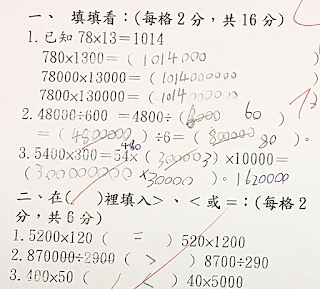 一、 填填看：(每格2分，共16分)
1. 已知 78×13＝1014
780×1300＝( 1014000 )
78000×13000＝( 1014000000 )
7800×130000＝( 1014 000000 )
2. 48000÷600 ＝4800÷( 60 )
＝( 4800000 )÷6＝( 80 )。
3. 5400×300＝54×( 3 )×10000＝
( ×30000 )。1620000
二、在( )裡填入＞、＜或＝：(每格2
分，共6分)
1. 5200×120 ( = ) 520×1200
2. 870000÷2900 ( > ) 8700÷290
3. 400×50 ( < ) 40×5000